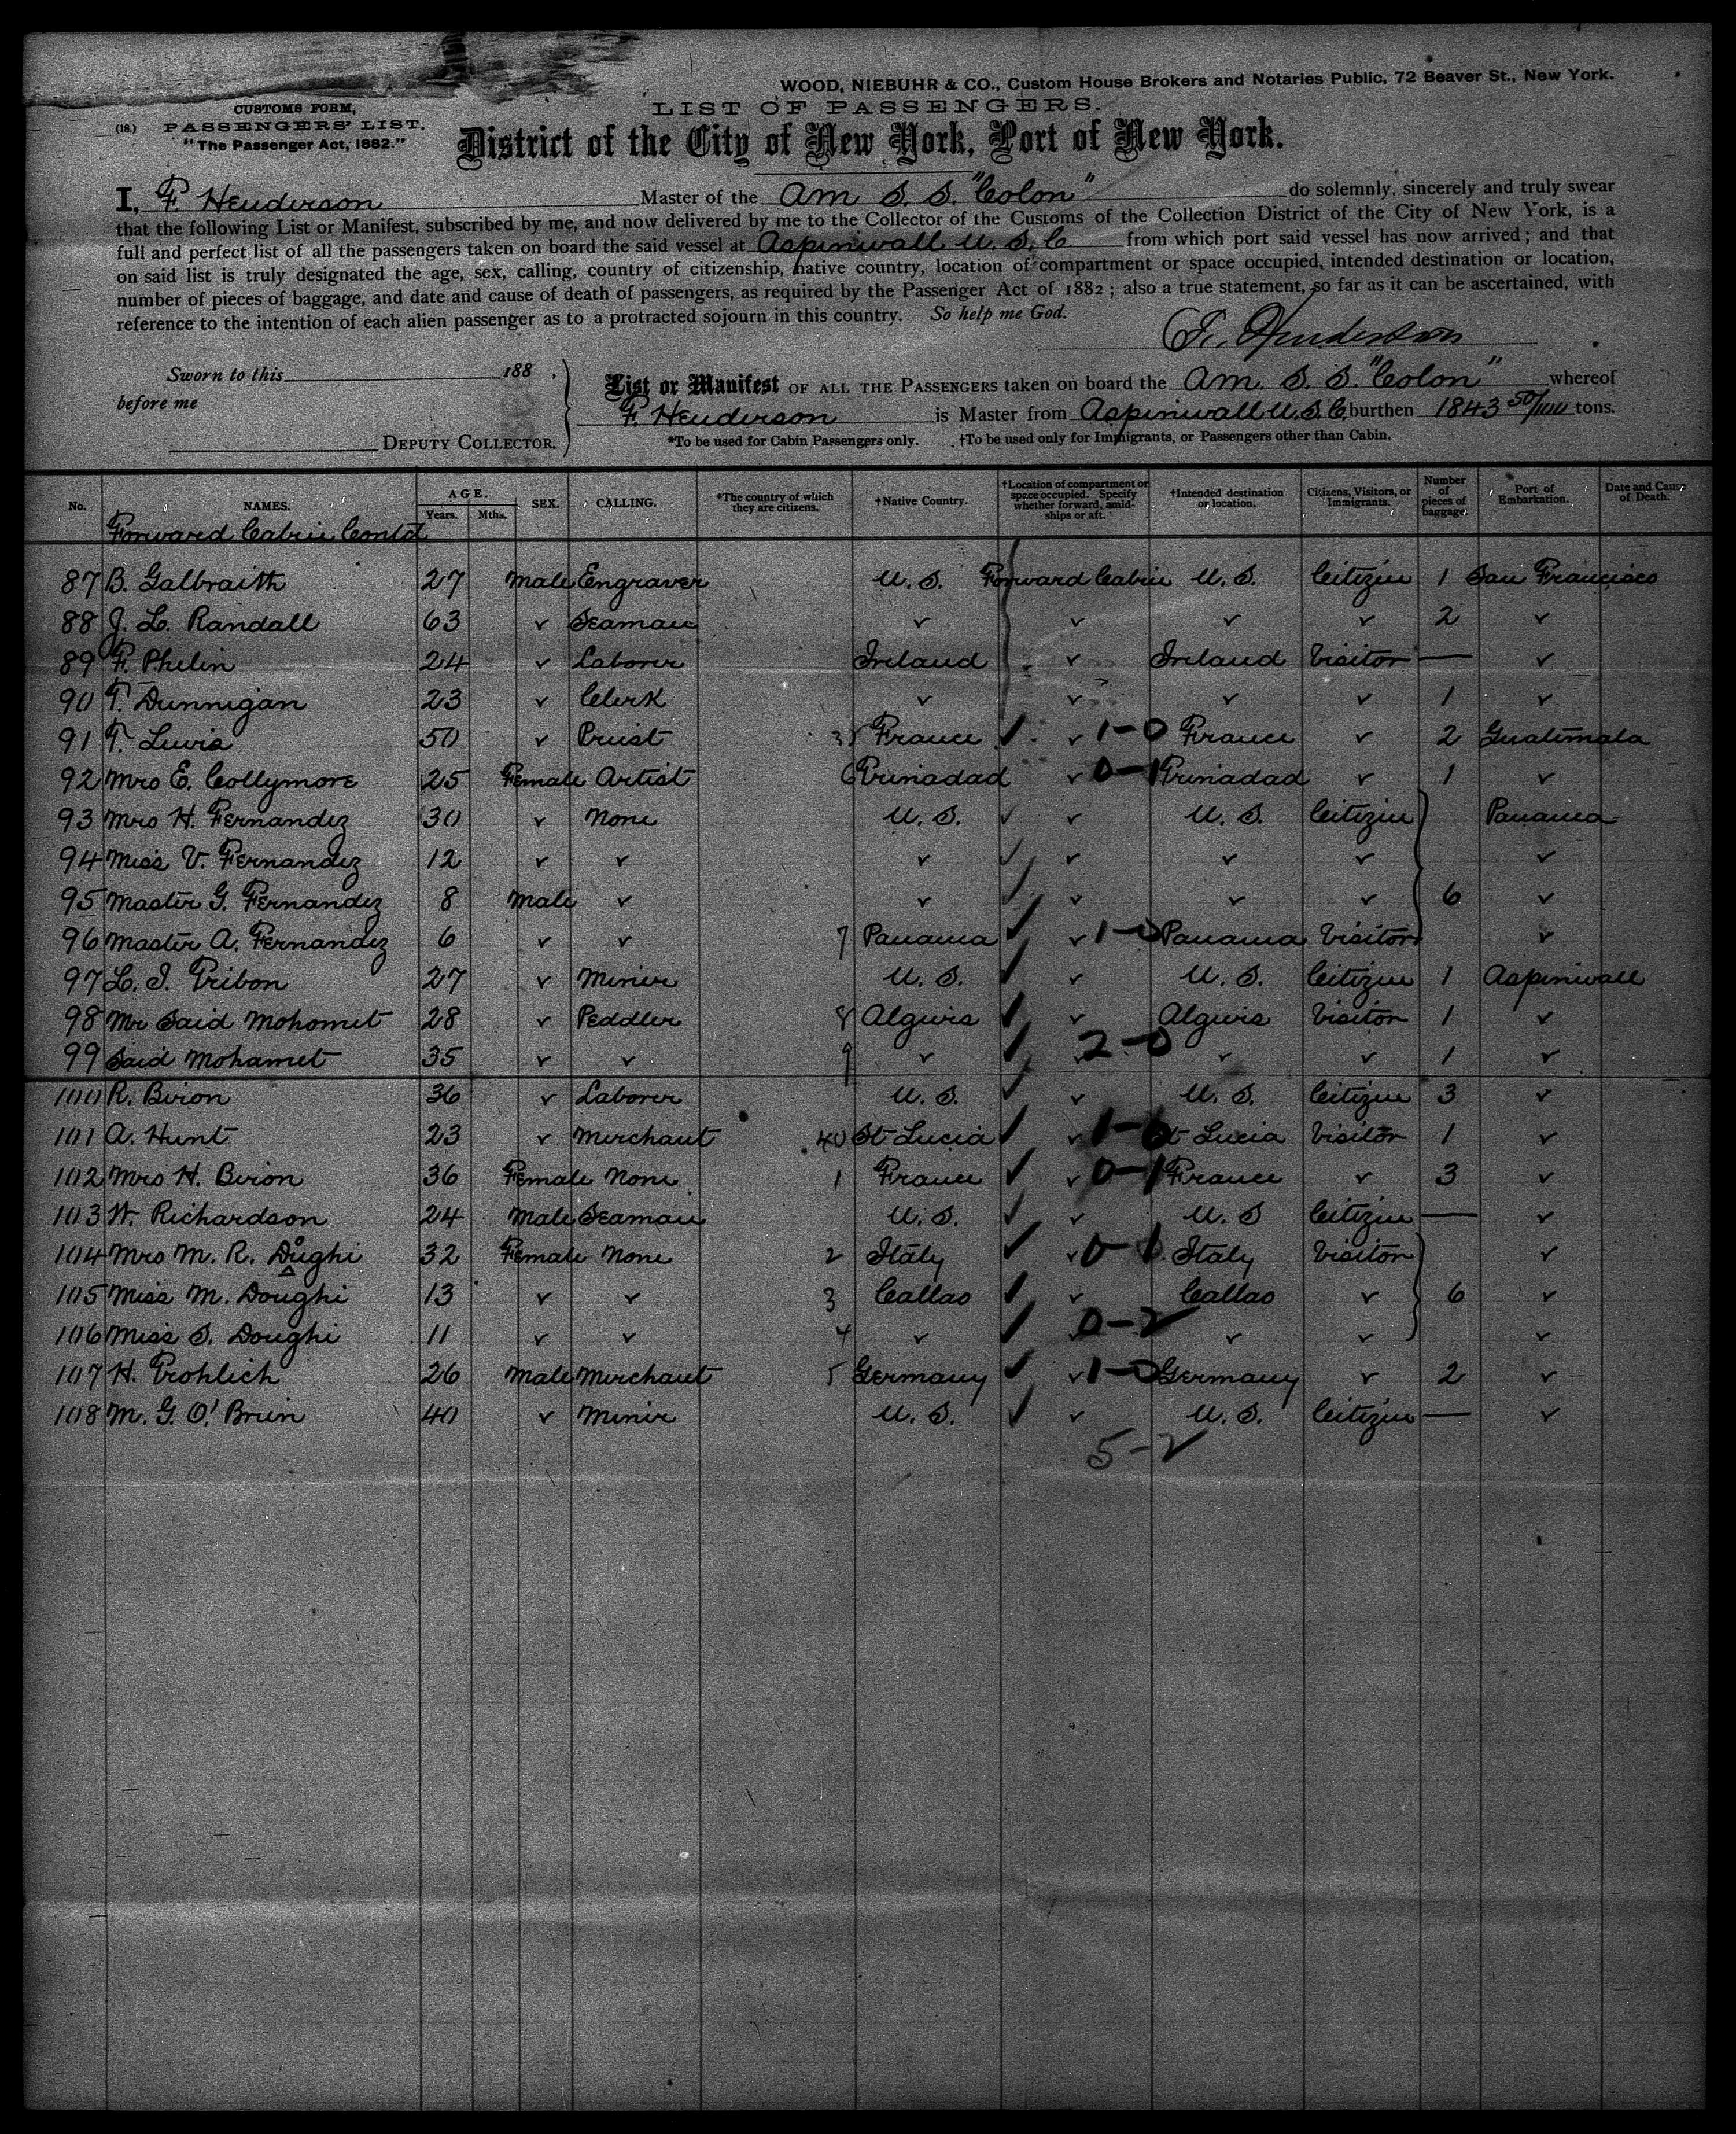 WOOD, NIEBUHR & CO., Custom House Brokers and Notaries Public, 72 Beaver St., New York.
(18.) CUSTOMS FORM,
PASSENGERS' LIST.
"The Passenger Act, 1882."
LIST OF PASSENGERS.
District of the City of New York, Port of New York.
I, F. Henderson Master of the Am S. S. "Colon" do solemnly, sincerely and truly swear
that the following List or Manifest, subscribed by me, and now delivered by me to the Collector of the Customs of the Collection District of the City of New York, is a
full and perfect list of all the passengers taken on board the said vessel at Aspinwall U. S. C from which port said vessel has now arrived; and that
on said list is truly designated the age, sex, calling, country of citizenship, native country, location of compartment or space occupied, intended destination or location,
number of pieces of baggage, and date and cause of death of passengers, as required by the Passenger Act of 1882; also a true statement, so far as it can be ascertained, with
reference to the intention of each alien passenger as to a protracted sojourn in this country. So help me God.
F. Henderson
Sworn to this 188 .
before me
DEPUTY COLLECTOR.
List or Manifest OF ALL THE PASSENGERS taken on board the Am. S. S. "Colon" whereof
F. Henderson is Master from Aspinwall U. S. C. burthen 1843 50/100 tons.
*To be used for Cabin Passengers only. †To be used only for Immigrants, or Passengers other than Cabin.
No. NAMES. AGE. Years. Mths. SEX. CALLING. *The country of which they are citizens. †Native Country. †Location of compartment or space occupied. Specify whether forward, amidships or aft. †Intended destination or location. Citizens, Visitors, or Immigrants. Number of pieces of baggage. Port of Embarkation. Date and Cause of Death.
Forward Cabin Contd
87 B. Galbraith 27 Male Engraver U. S. Forward Cabin U. S. Citizen 1 San Francisco
88 J. L. Randall 63 ✓ Seaman ✓ ✓ ✓ ✓ 2 ✓
89 F. Phelin 24 ✓ Laborer Ireland ✓ Ireland Visitor — ✓
90 T. Dunnigan 23 ✓ Clerk ✓ ✓ ✓ ✓ 1 ✓
91 T. Lewis 50 ✓ Priest France ✓ ✓ 1-0 France ✓ 2 Guatemala
92 Mrs E. Collymore 25 Female Artist 6 Trinadad ✓ 0-1 Trinadad ✓ 1 ✓
93 Mrs H. Fernandez 30 ✓ None U. S. ✓ ✓ U. S. Citizen Panama
94 Miss V. Fernandez 12 ✓ ✓ ✓ ✓ ✓ ✓ ✓ ✓
95 Master G. Fernandez 8 Male ✓ ✓ ✓ ✓ ✓ ✓ 6 ✓
96 Master A. Fernandez 6 ✓ ✓ 7 Panama ✓ ✓ 1-0 Panama Visitor ✓
97 L. I. Tribon 27 ✓ Miner U. S. ✓ ✓ U. S. Citizen 1 Aspinwall
98 Mr Said Mohomet 28 ✓ Peddler 8 Algiers ✓ ✓ Algiers Visitor 1 ✓
99 Said Mohamet 35 ✓ ✓ 9 ✓ ✓ ✓ 2-0 ✓ ✓ 1 ✓
100 R. Biron 36 ✓ Laborer U. S. ✓ ✓ U. S. Citizen 3 ✓
101 A. Hunt 23 ✓ Merchant 40 St Lucia ✓ ✓ 1-0 St Lucia Visitor 1 ✓
102 Mrs H. Biron 36 Female None 1 France ✓ ✓ 0-1 France ✓ 3 ✓
103 W. Richardson 24 Male Seaman U. S. ✓ ✓ U. S Citizen — ✓
104 Mrs M. R. Doughi 32 Female None 2 Italy ✓ ✓ 0-1 Italy Visitor ✓
105 Miss M. Doughi 13 ✓ ✓ 3 Callao ✓ ✓ Callao ✓ 6 ✓
106 Miss S. Doughi 11 ✓ ✓ 4 ✓ ✓ ✓ 0-2 ✓ ✓ ✓
107 H. Frohlich 26 Male Merchant 5 Germany ✓ ✓ 1-0 Germany ✓ 2 ✓
108 M. G. O'Brien 40 ✓ Miner U. S. ✓ ✓ U. S. Citizen — ✓
5-2